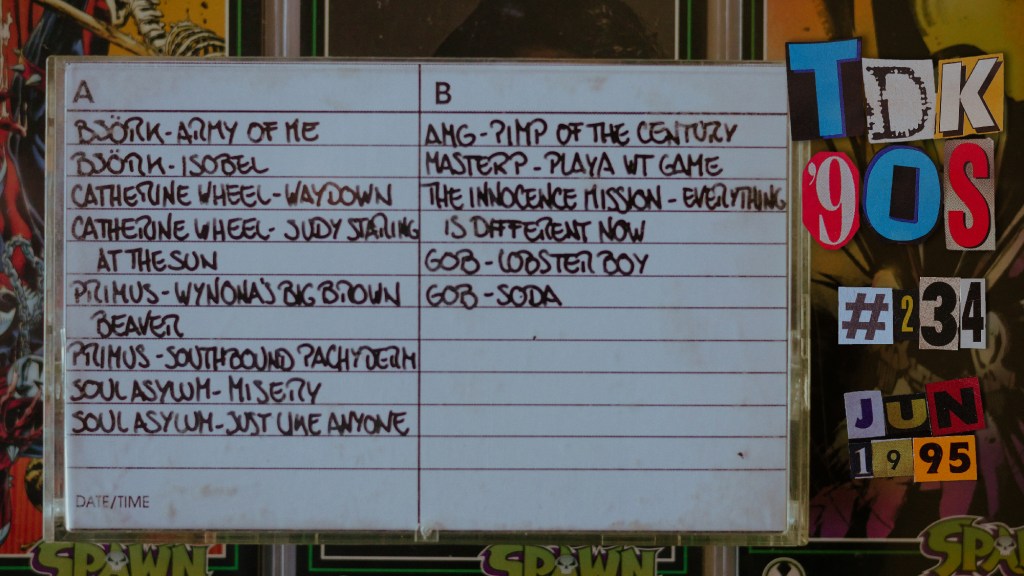 A
BJÖRK-ARMY OF ME
BJÖRK-ISOBEL
CATHERINE WHEEL-WAYDOWN
CATHERINE WHEEL-JUDY STARING
AT THE SUN
PRIMUS-WYNONA'S BIG BROWN
BEAVER
PRIMUS-SOUTHBOUND PACHYDERM
SOUL ASYLUM-MISERY
SOUL ASYLUM-JUST LIKE ANYONE
DATE/TIME
B
AMG-PIMP OF THE CENTURY
MASTER P-PLAYA WT GAME
THE INNOCENCE MISSION-EVERYTHING
IS DIFFERENT NOW
GOB-LOBSTER BOY
GOB-SODA
TDK
'90S
#234
JUN
1995
SPAWN
SPAWN
SPA